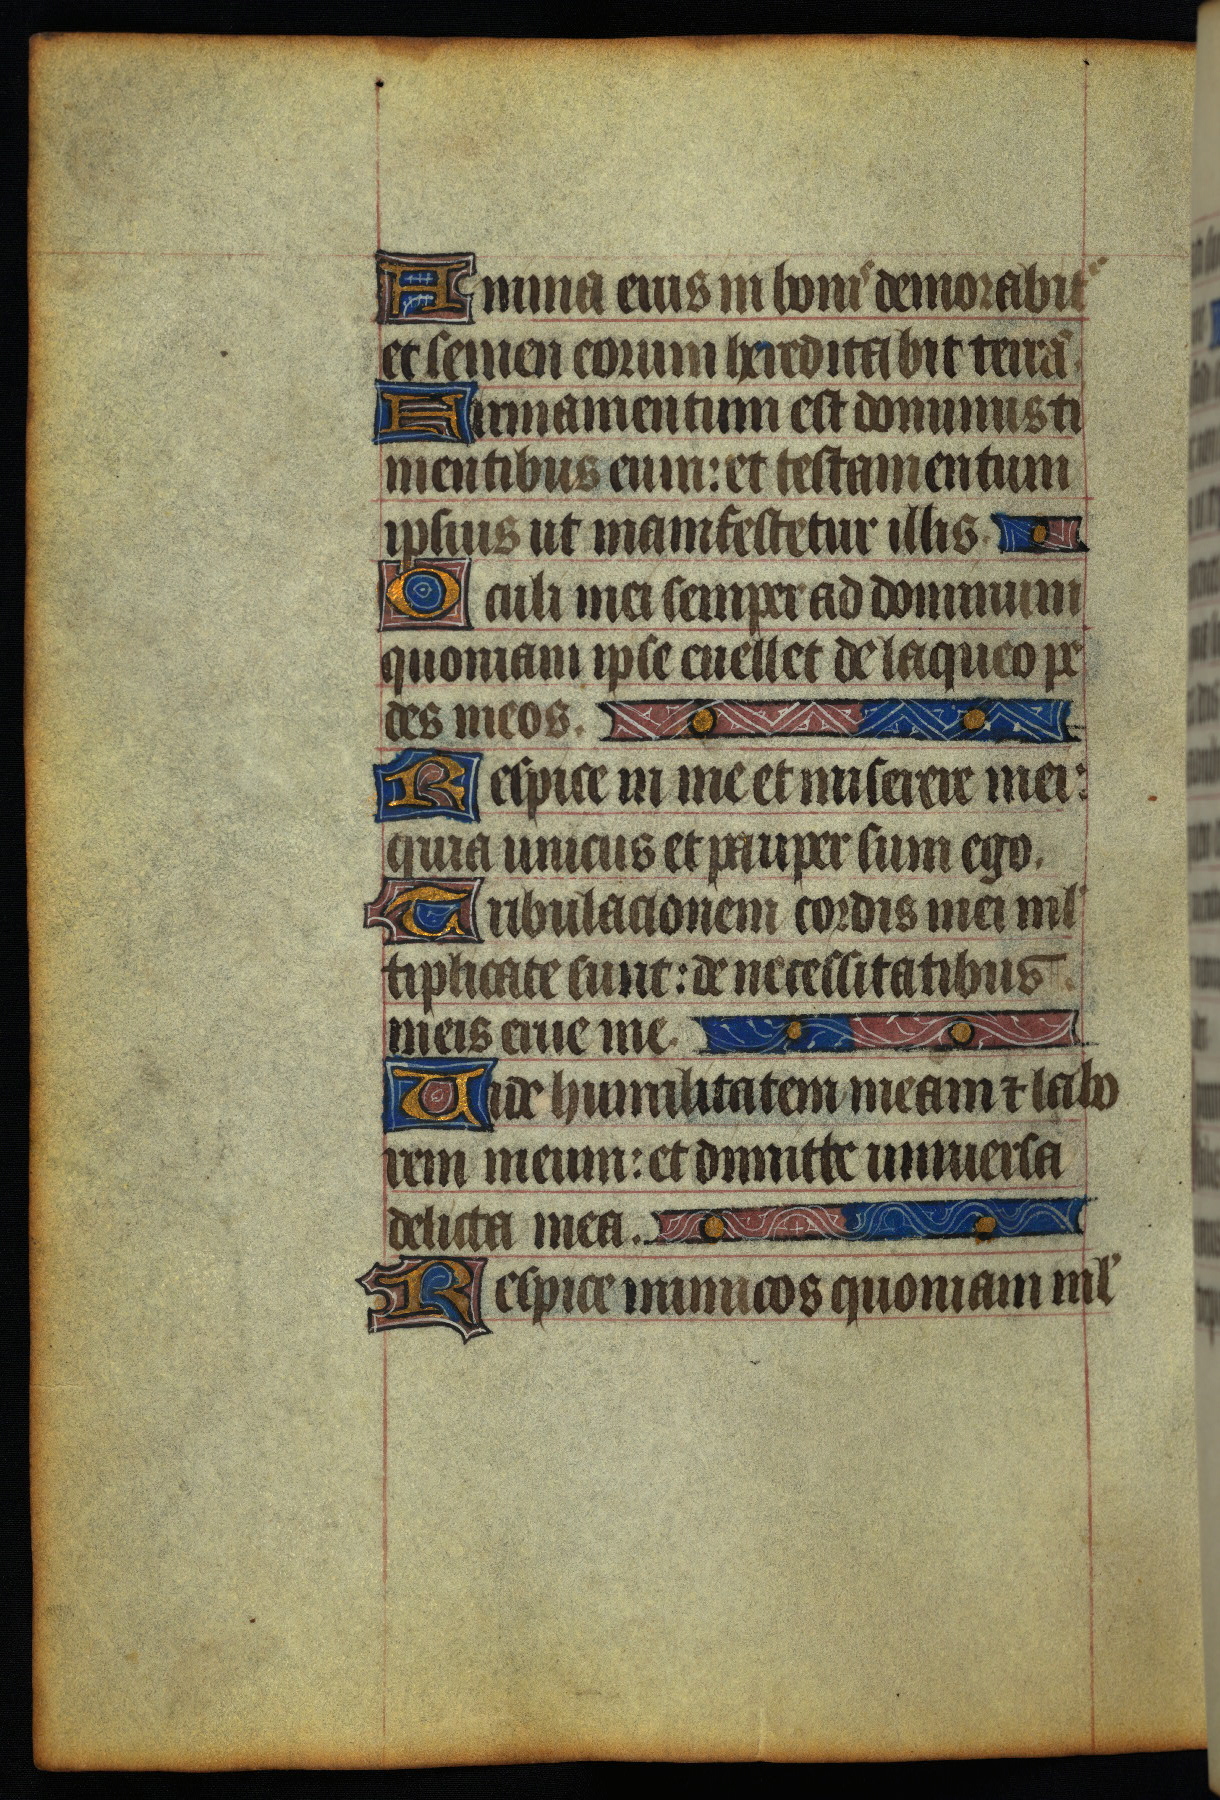 Anima eius in bonis demorabitur
et semen eorum hereditabit terrā.
Firmamentum est dominus ti
mentibus eum: et testamentum
ipsius ut manifestetur illis.
Oculi mei semper ad dominum
quoniam ipse euellet de laqueo pe
des meos.
Respice in me et miserere mei:
quia unicus et pauper sum ego.
Tribulacionem cordis mei mul
tiplicate sunt: de necessitatibus
meis erue me.
Uide humilitatem meam ⁊ labo
rem meum: et dimitte uniuersa
delicta mea.
Respice inimicos quoniam mul